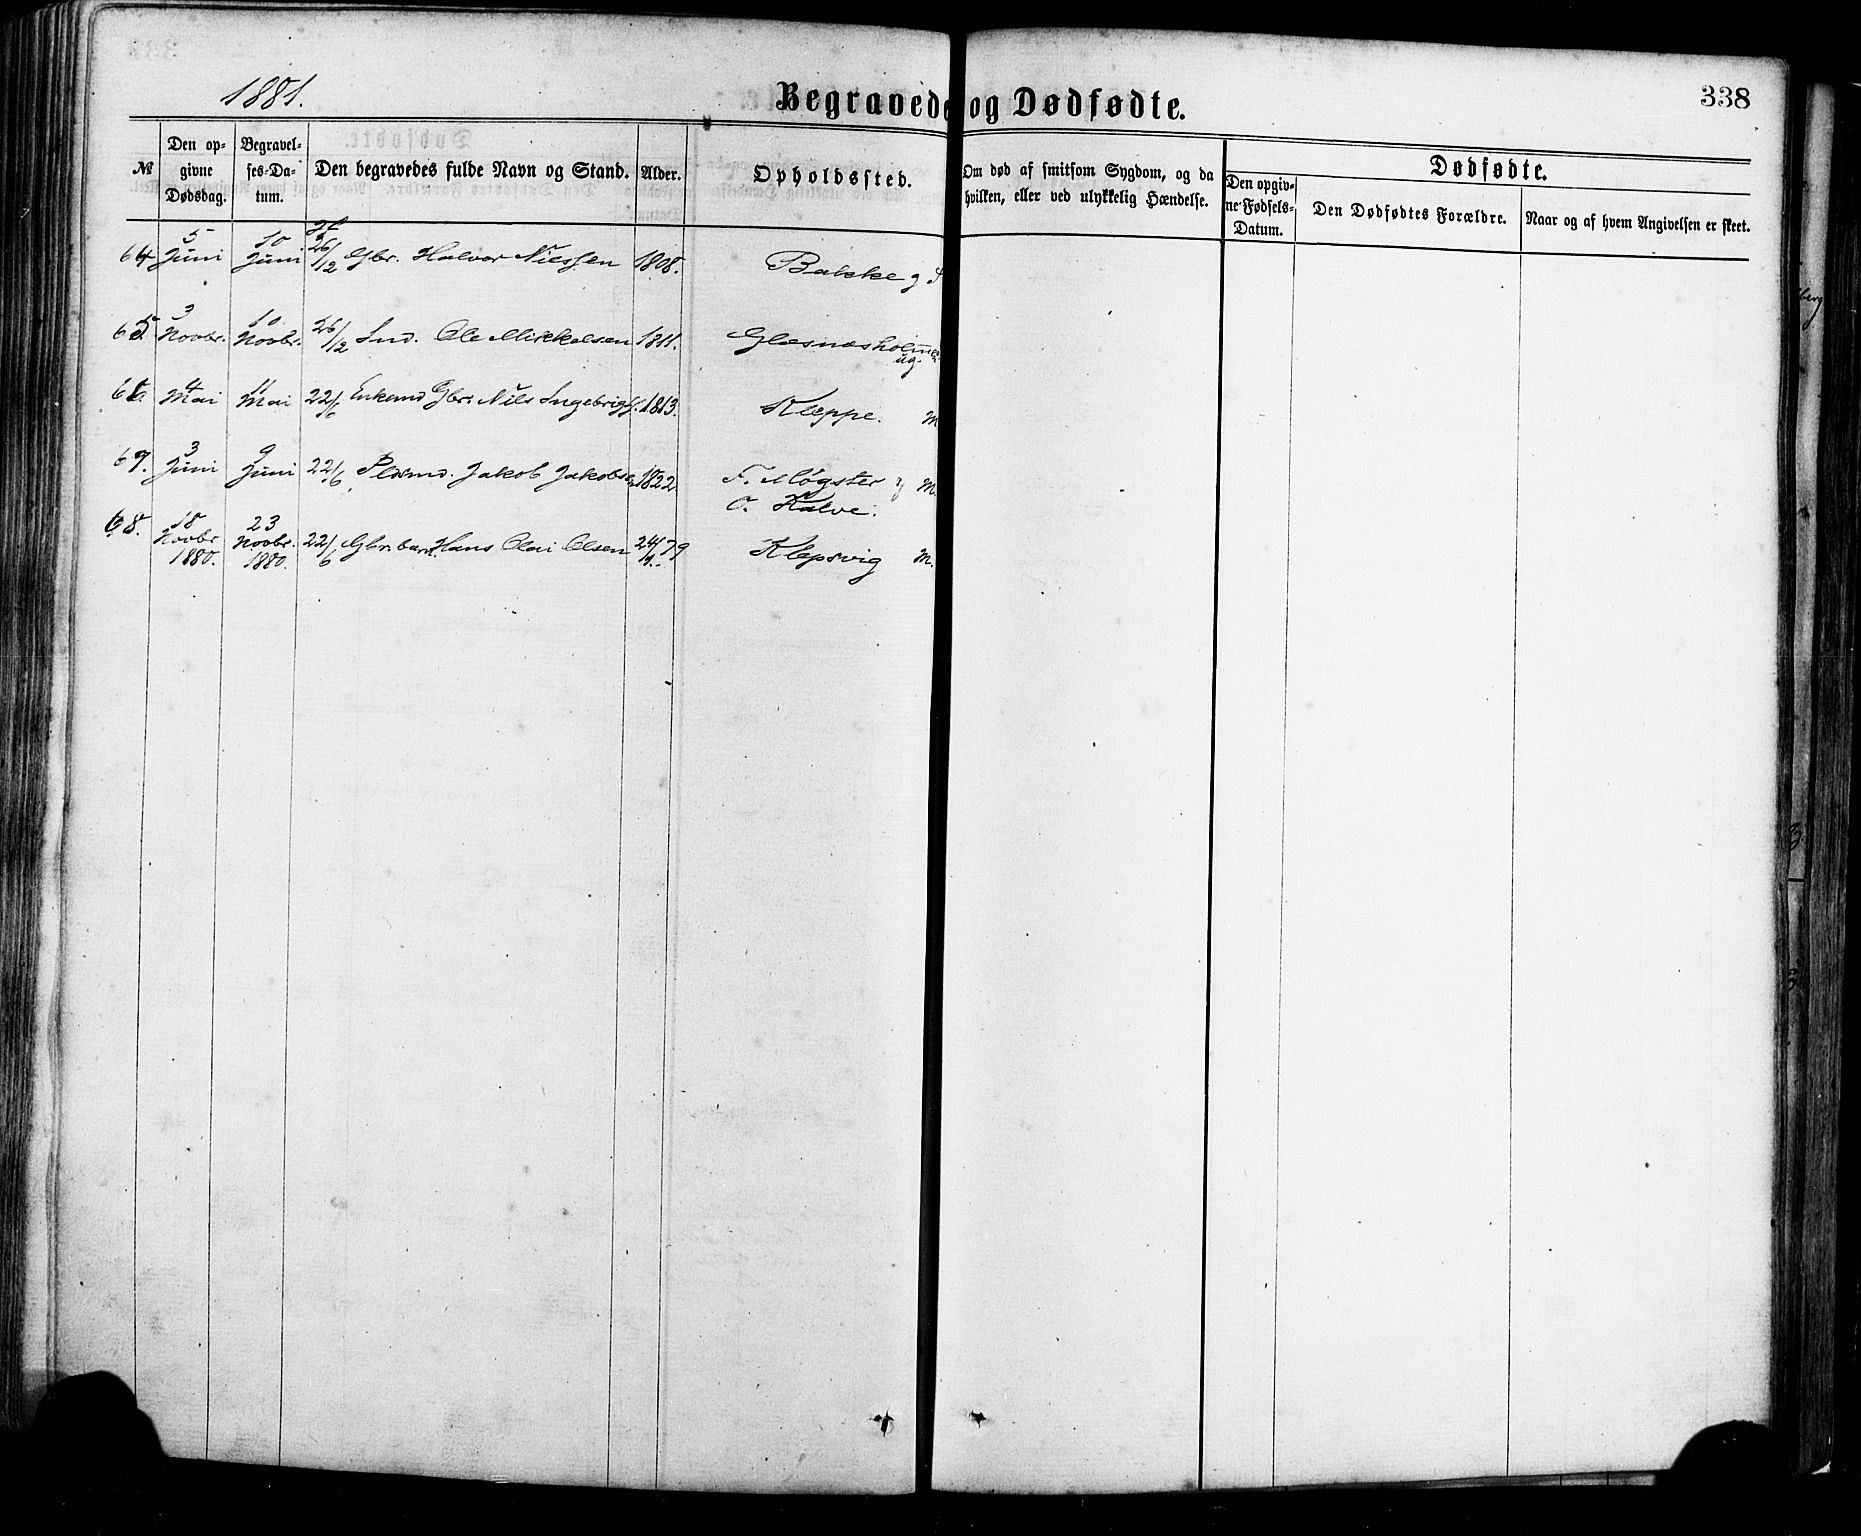 1881.
Begravede og Dødfødte.
338
№
Den op-
givne
Dødsdag.
Begravel-
ses-Da-
tum.
Den begravedes fulde Navn og Stand.
Alder.
Opholdssted.
Om død af smitsom Sygdom, og da
hvilken, eller ved ulykkelig Hændelse.
Dødfødte.
Den opgiv-
ne Fødsels-
Datum.
Den Dødfødtes Forældre.
Naar og af hvem Angivelsen er skeet.
64 5 Juni 10 Juni 26/12 Gbr. Halvor Nilssen 1808. Bakke
65 3 Novbr. 10 Novbr. 26/12 Ind. Ole Mikkelsen 1811. Glesnæsholmen
ug.
66. 4 Mai 11 Mai 22/6 Enkemd Gbr. Nils Ingebrigts. 1813. Kleppe. M
67. 3 Juni 9 Juni 22/6 Jakob Jakobsen 1822 F. Møgster M.
O. Kalve.
68. 18 Novbr 1880. 23 Novbr. 1880. 22/6 Gbr. barn Hans Olai Olsen 24/9 79 Klepsvig M.